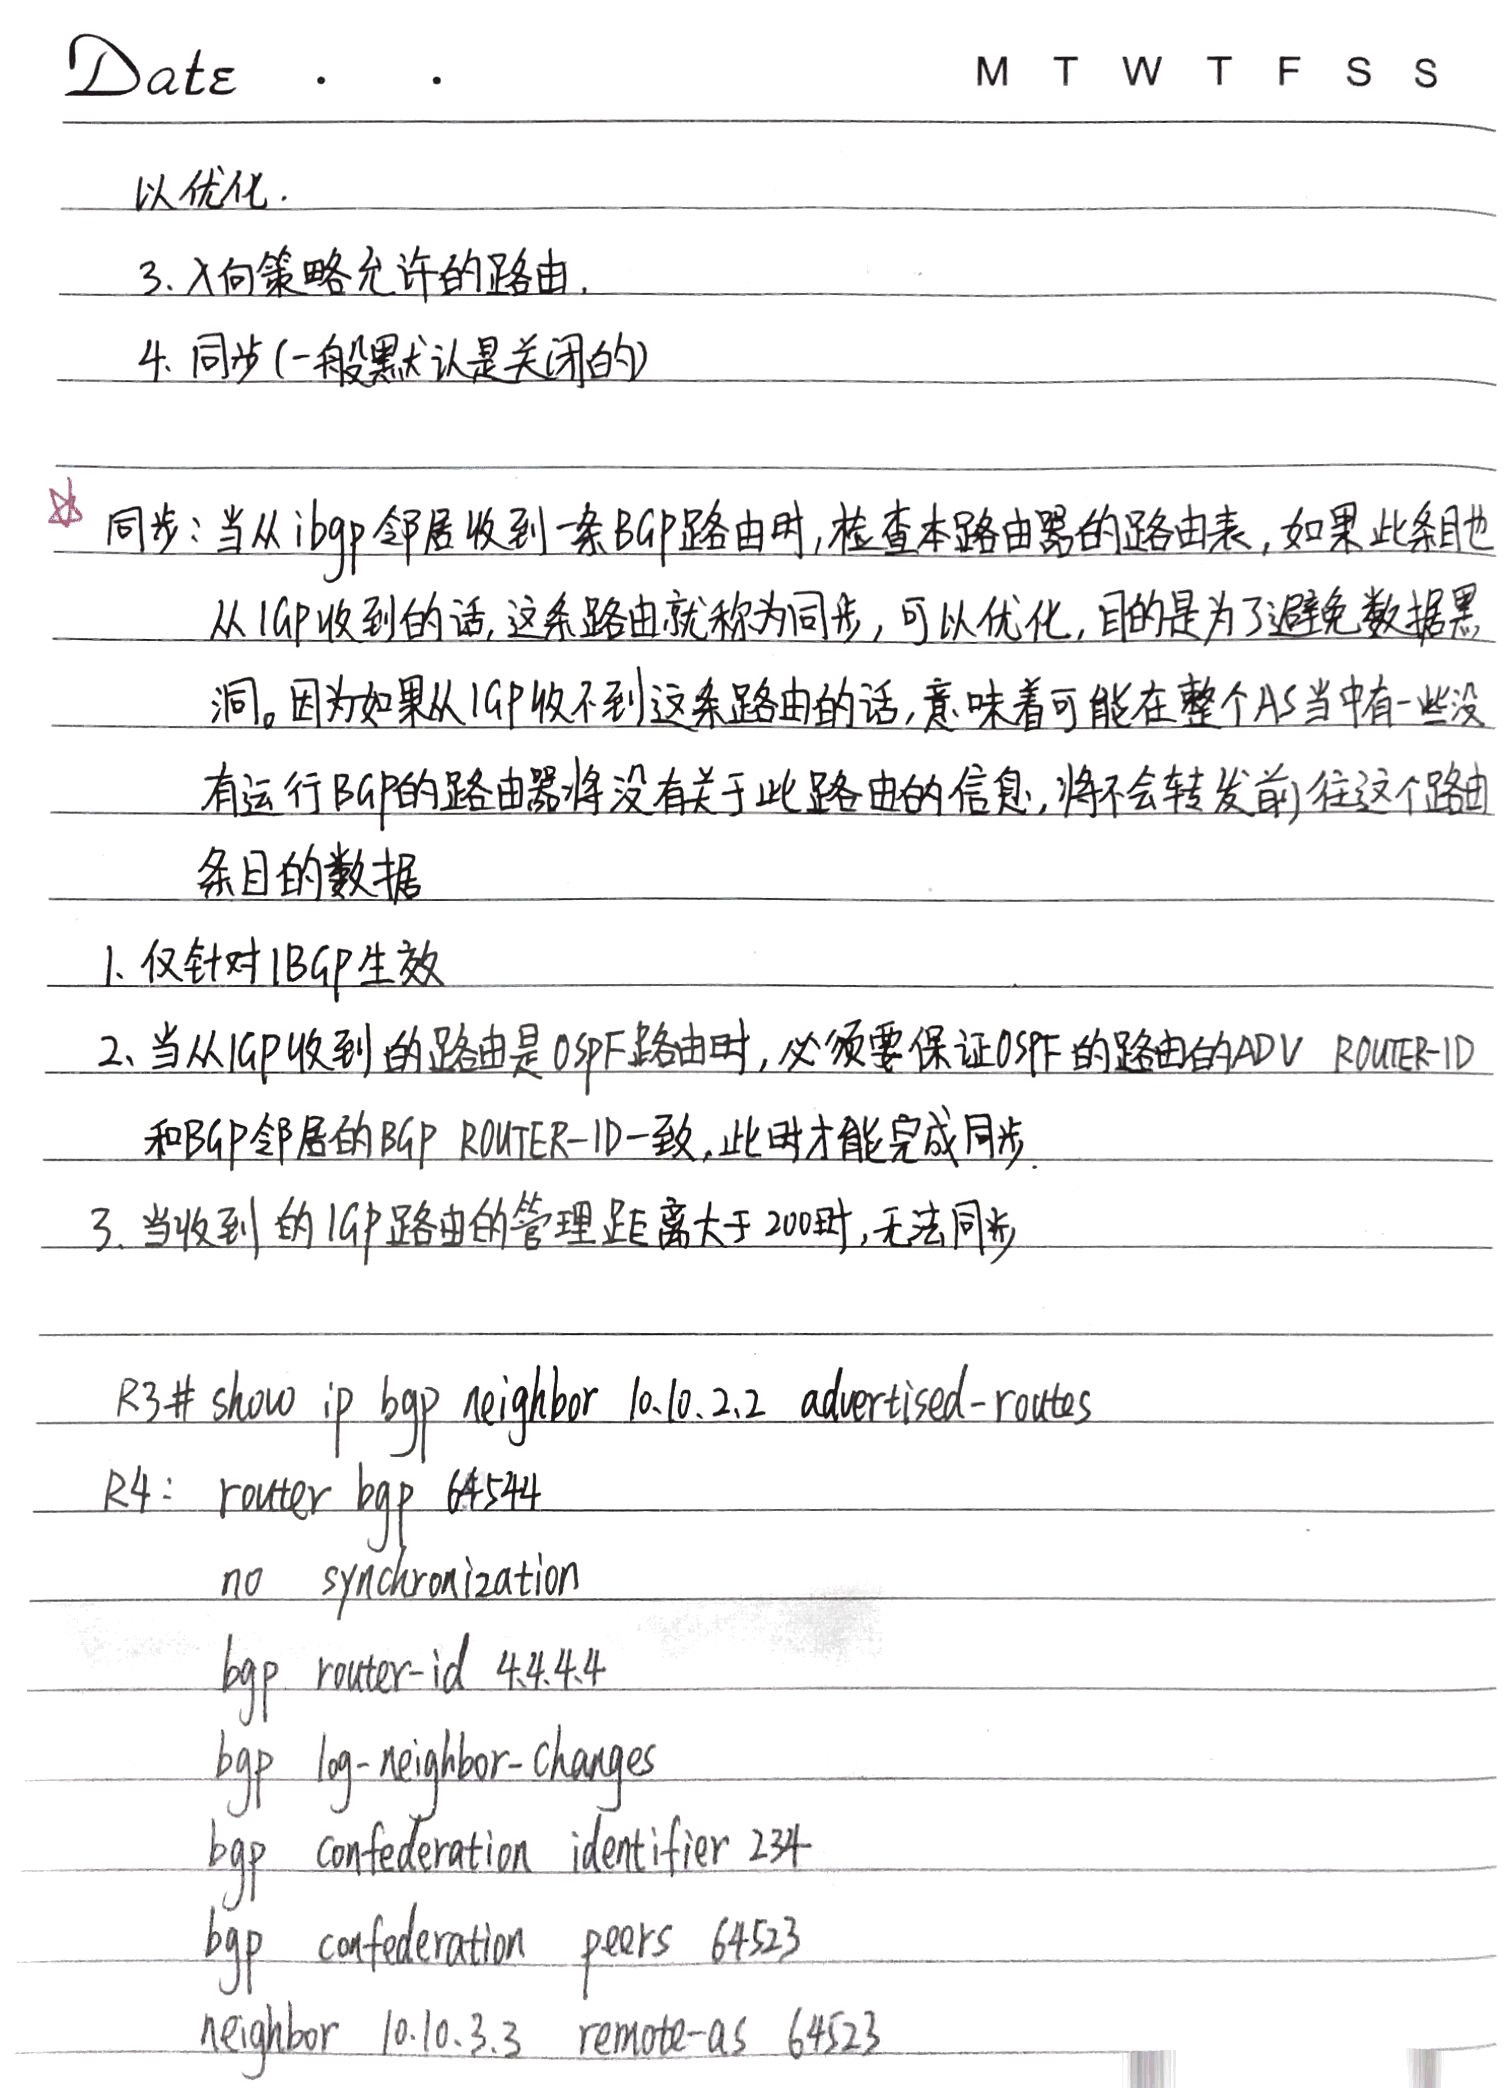 Date . .
M T W T F S S
以优化.
3. 入向策略允许的路由.
4. 同步(一般默认是关闭的)
同步：当从ibgp邻居收到一条BGP路由时,检查本路由器的路由表,如果此条目也
从IGP收到的话,这条路由就称为同步,可以优化,目的是为了避免数据黑
洞。因为如果从IGP收不到这条路由的话,意味着可能在整个AS当中有一些没
有运行BGP的路由器将没有关于此路由的信息,将不会转发前往这个路由
条目的数据
1、仅针对IBGP生效
2、当从IGP收到的路由是OSPF路由时,必须要保证OSPF的路由的ADV ROUTER-ID
和BGP邻居的BGP ROUTER-ID一致,此时才能完成同步.
3、当收到的IGP路由的管理距离大于200时,无法同步
R3# show ip bgp neighbor 10.10.2.2 advertised-routes
R4: router bgp 64544
no synchronization
bgp router-id 4.4.4.4
bgp log-neighbor-changes
bgp confederation identifier 234
bgp confederation peers 64523
neighbor 10.10.3.3 remote-as 64523